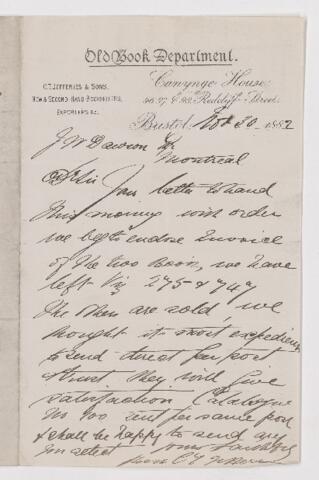 Old Book Department.
C. T. JEFFERIES & SONS,
NEW & SECOND HAND BOOKSELLERS,
EXPORTERS &c.
Canynge House,
Redcliff Street,
Bristol, Nov 20 1882
J W Dawson Esq
Montreal
Dr Sir Your letter to hand
this morning with order
we beg to enclose Invoice
of the two Books, we have
left Viz 275 & 747
The others are sold, we
thought it most expedient
to send these per post
& trust they will give
satisfaction Catalogue
No 100 sent per same post
& shall be happy to send any
you select
yours faithfully